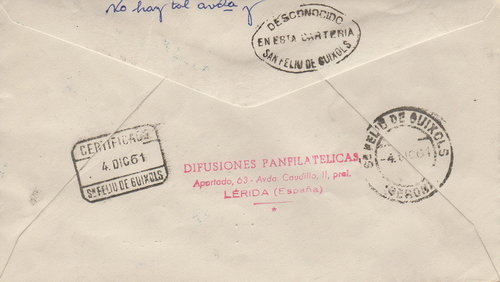 No hay tal avda y
DESCONOCIDO
EN ESTA CARTERIA
SAN FELIU DE GUIXOLS
CERTIFICADO
4. DIC 61
Sn FELIU DE GUIXOLS
DIFUSIONES PANFILATELICAS
Apartado, 63 - Avda. Caudillo, 11, pral.
LÉRIDA (España)
*
Sn FELIU DE GUIXOLS
-4. DIC 61
(GERONA)